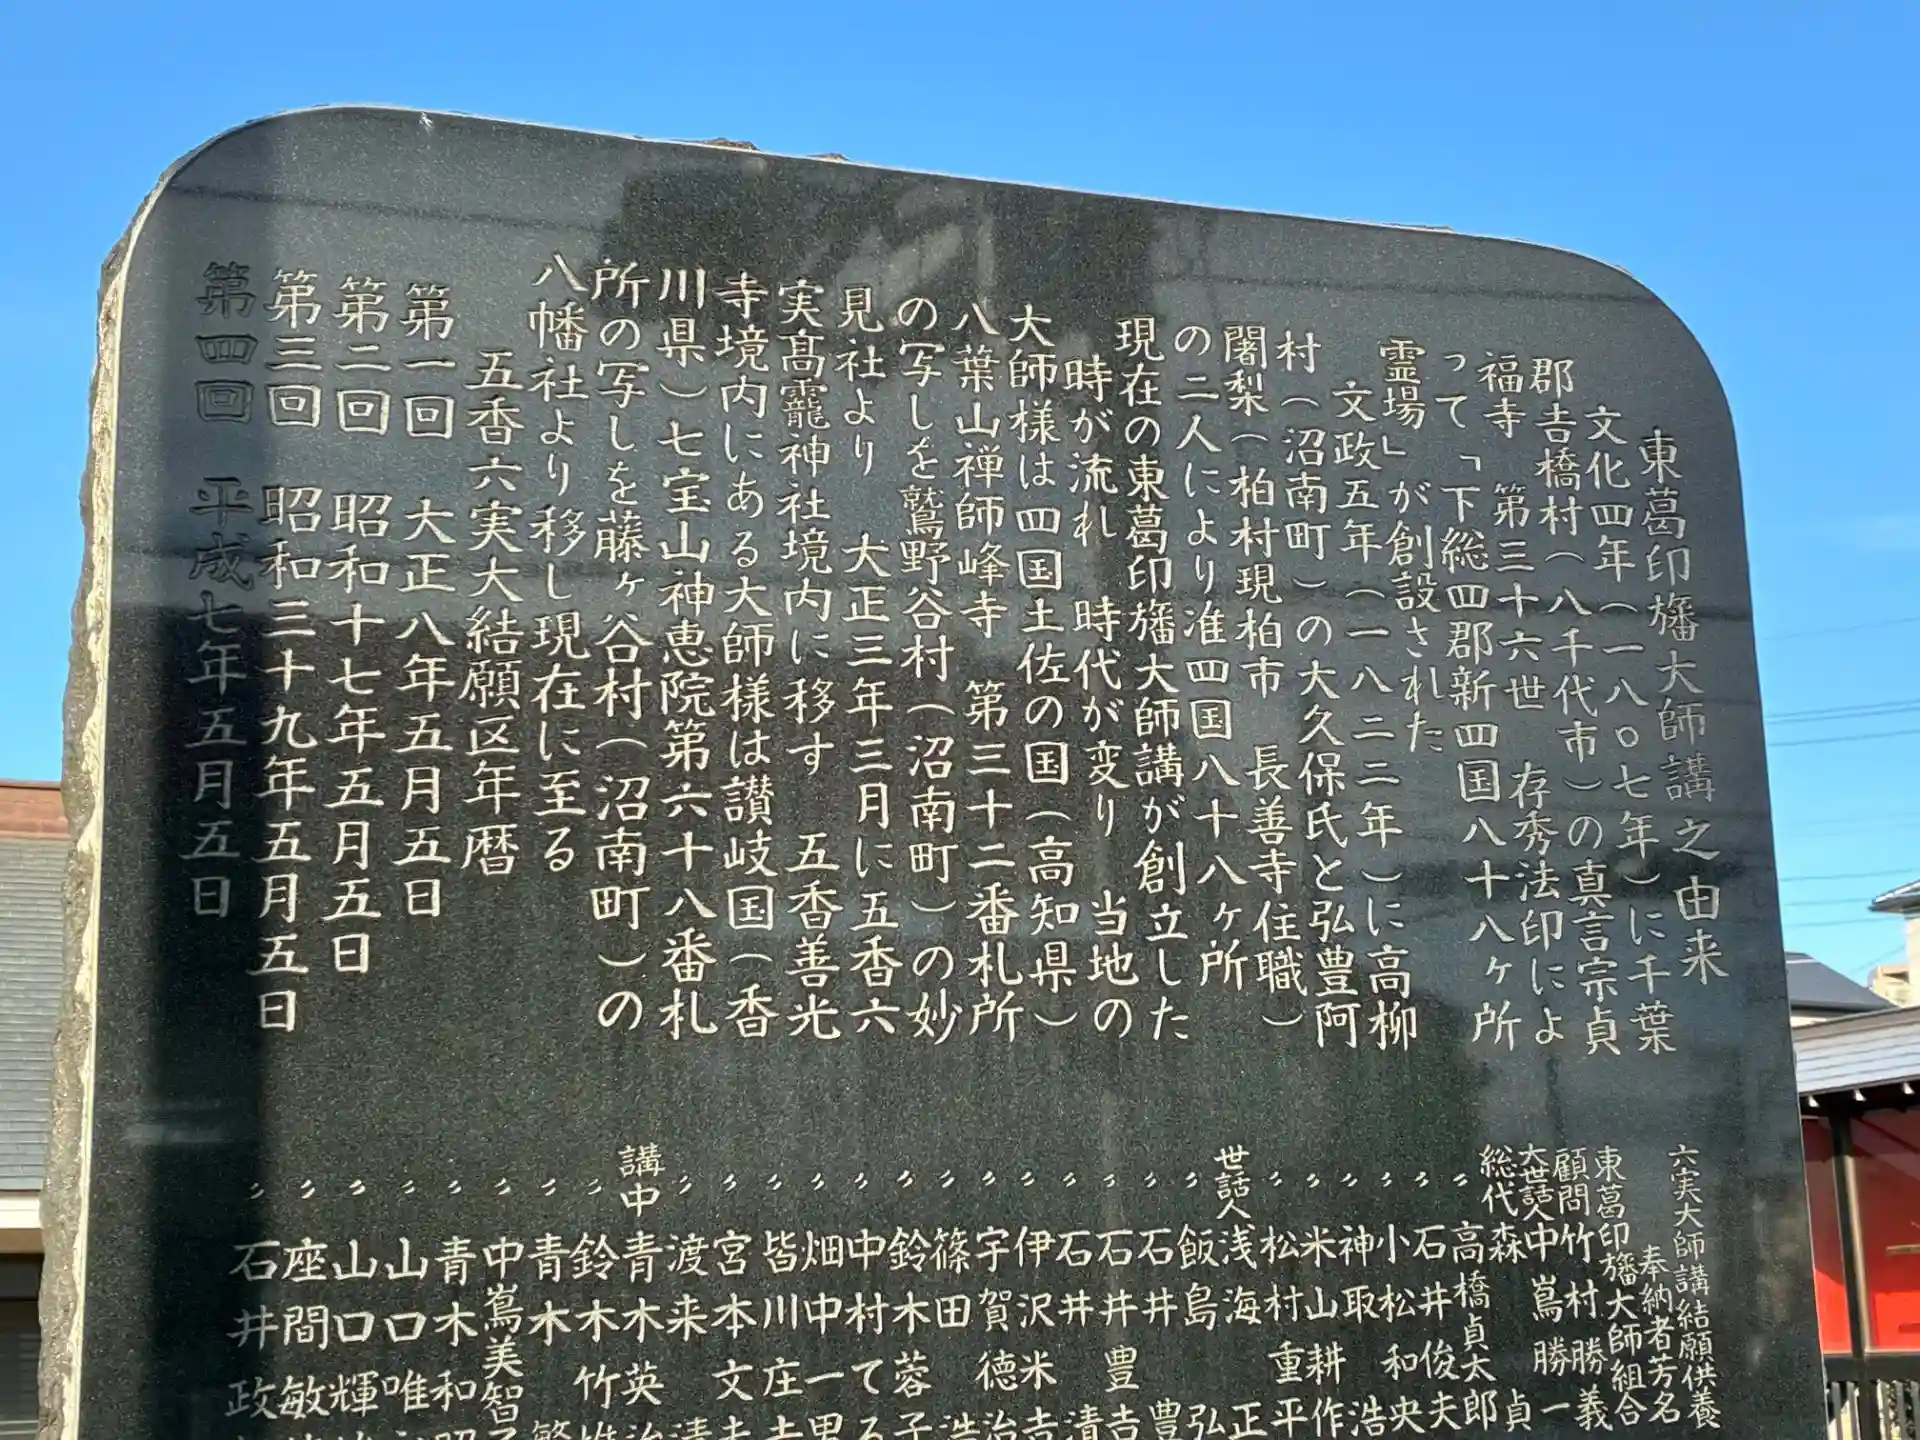 東葛印旛大師講之由来
文化四年(一八〇七年)に千葉
郡吉橋村(八千代市)の真言宗貞
福寺 第三十六世 存秀法印によ
って「下総四郡新四国八十八ヶ所
霊場」が創設された
文政五年(一八二二年)に高柳
村(沼南町)の大久保氏と弘豊阿
闍梨(柏村現柏市 長善寺住職)
の二人により准四国八十八ヶ所
現在の東葛印旛大師講が創立した
時が流れ 時代が変り 当地の
大師様は四国土佐の国(高知県)
八葉山禅師峰寺 第三十二番札所
の写しを鷲野谷村(沼南町)の妙
見社より 大正三年三月に五香六
実髙靇神社境内に移す 五香善光
寺境内にある大師様は讃岐国(香
川県)七宝山神恵院第六十八番札
所の写しを藤ヶ谷村(沼南町)の
八幡社より移し現在に至る
五香六実大結願区年暦
第一回 大正八年五月五日
第二回 昭和十七年五月五日
第三回 昭和三十九年五月五日
第四回 平成七年五月五日
六実大師講結願供養
奉納者芳名
東葛印旛大師組合
顧問 竹村勝義
大世話人 中嶌勝一
総代 森 貞
〃 高橋貞太郎
〃 石井俊夫
〃 小松和央
〃 神取 浩
〃 米山耕作
〃 松村重平
世話人 浅海 正
〃 飯島 弘
〃 石井 豊
〃 石井豊吉
〃 石井 清
〃 伊沢米吉
〃 宇賀徳治
〃 篠田 浩
〃 鈴木蓉子
〃 中村てる
〃 畑中一男
〃 皆川庄
〃 宮本文夫
〃 渡来 清
講中 青木英治
〃 鈴木竹
〃 青木 繁
〃 中嶌美智子
〃 青木和昭
〃 山口唯
〃 山口輝
〃 座間敏
〃 石井政